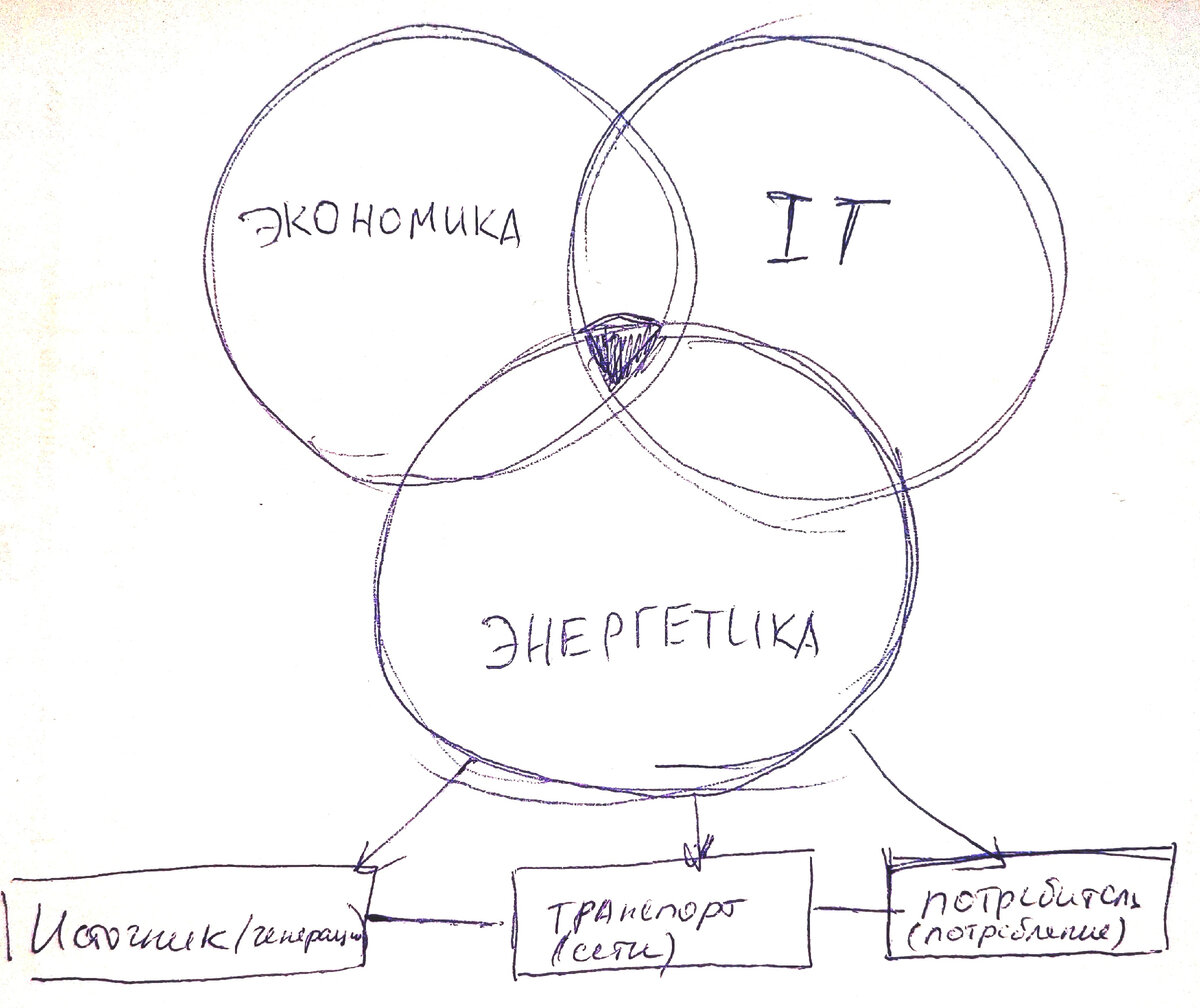 ЭКОНОМИКА
IT
ЭНЕРГЕТИКА
Источник/генерация
ТРАНСПОРТ
(сети)
ПОТРЕБИТЕЛЬ
(потребление)